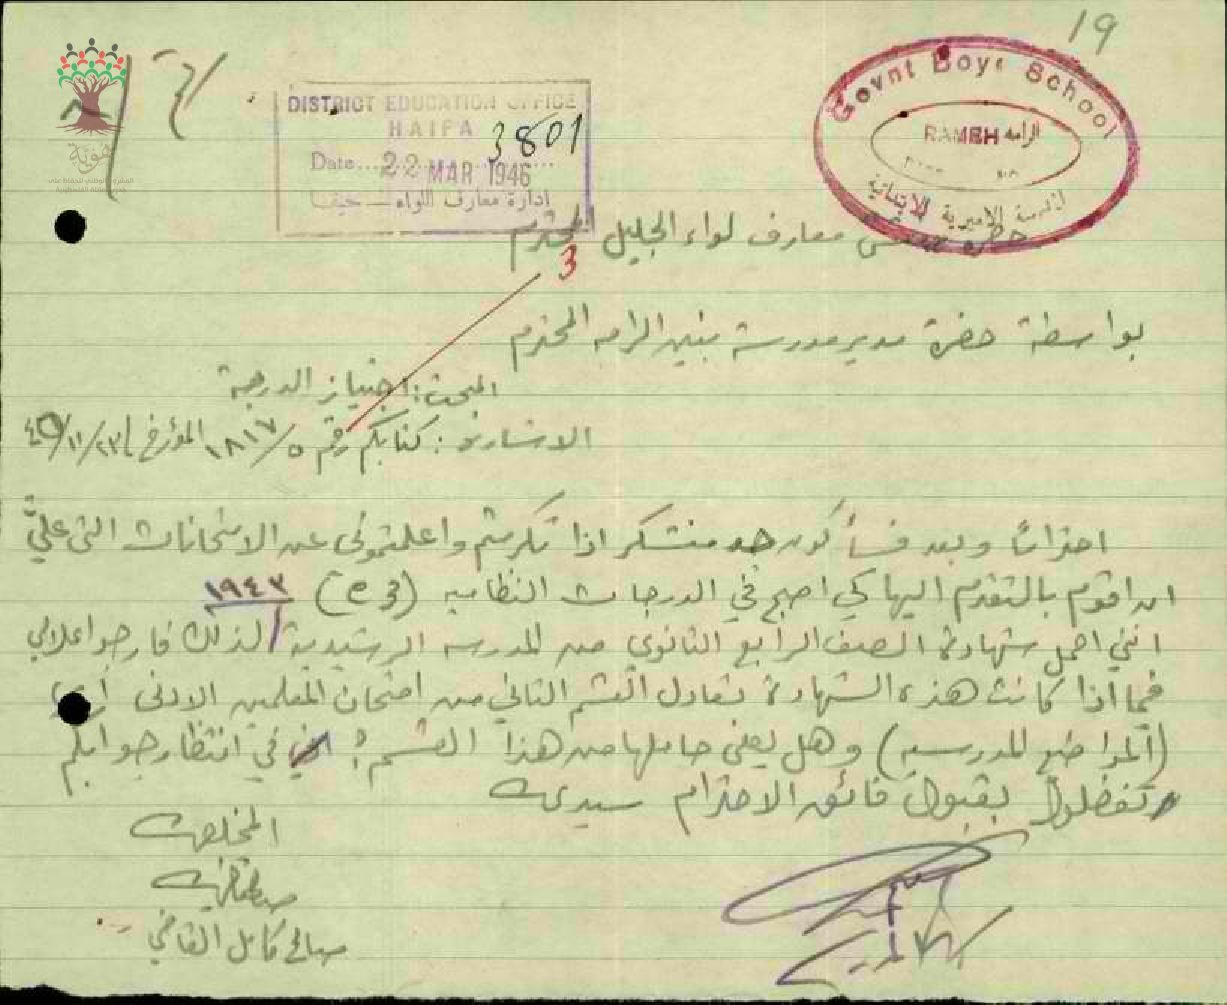 19
Govnt Boys School
RAMEH الرامه
المدرسة الاميرية الابتدائية
DISTRICT EDUCATION OFFICE
HAIFA
3801
Date 22 MAR 1946
ادارة معارف اللواء — حيفا
هوية
حضرة مفتش معارف لواء الجليل المحترم
3
بواسطة حضرة مدير مدرسة بنين الرامه المحترم
المبحث: اجتياز الدرجة
الاشارة: كتابكم رقم ٥/١٨١٧ المؤرخ ٢٣/١١/٤٥
احتراماً وبعد فسأكون جد متشكر اذا تكرمتم واعلمتموني عن الامتحانات التي عليَّ
ان اقوم بالتقدم اليها كي اصبح في الدرجات النظاميه
١٩٤٣
انني احمل شهادة الصف الرابع الثانوي من المدرسه الرشيدية لذلك فارجو اعلامي
فيما اذا كانت هذه الشهادة تعادل القسم الثاني من امتحان المعلمين الادنى
(المواضيع المدرسيه) وهل يعفى حاملها من هذا القسم؟ في انتظار جوابكم
تفضلوا بقبول فائق الاحترام سيدي
المخلص
صالح كامل القاضي